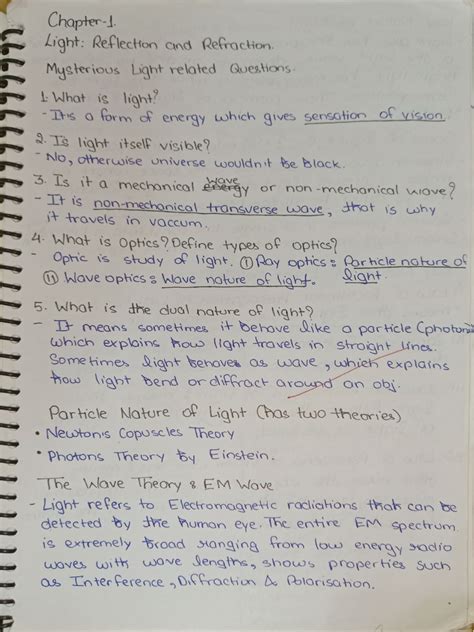 Chapter-1.
Light: Reflection and Refraction.
Mysterious Light related Questions.
1. What is light?
- It is a form of energy which gives sensation of vision.
2. Is light itself visible?
- No, otherwise universe wouldn't be black.
3. Is it a mechanical wave or non-mechanical wave?
- It is non-mechanical transverse wave, that is why
it travels in vaccum.
4. What is Optics? Define types of optics?
- Optic is study of light. (i) Ray optics: Particle nature of
light.
(ii) Wave optics: Wave nature of light.
5. What is the dual nature of light?
- It means sometimes it behave like a particle (photon)
which explains how light travels in straight lines.
Sometimes light behaves as wave, which explains
how light bend or diffract around an obj.
Particle Nature of Light (has two theories)
• Newtons Copuscles Theory
• Photons Theory by Einstein.
The Wave Theory & EM Wave
- Light refers to Electromagnetic radiations that can be
detected by the human eye. The entire EM spectrum
is extremely broad ranging from low energy radio
waves with wave lengths, shows properties such
as Interference, Diffraction & Polarisation.